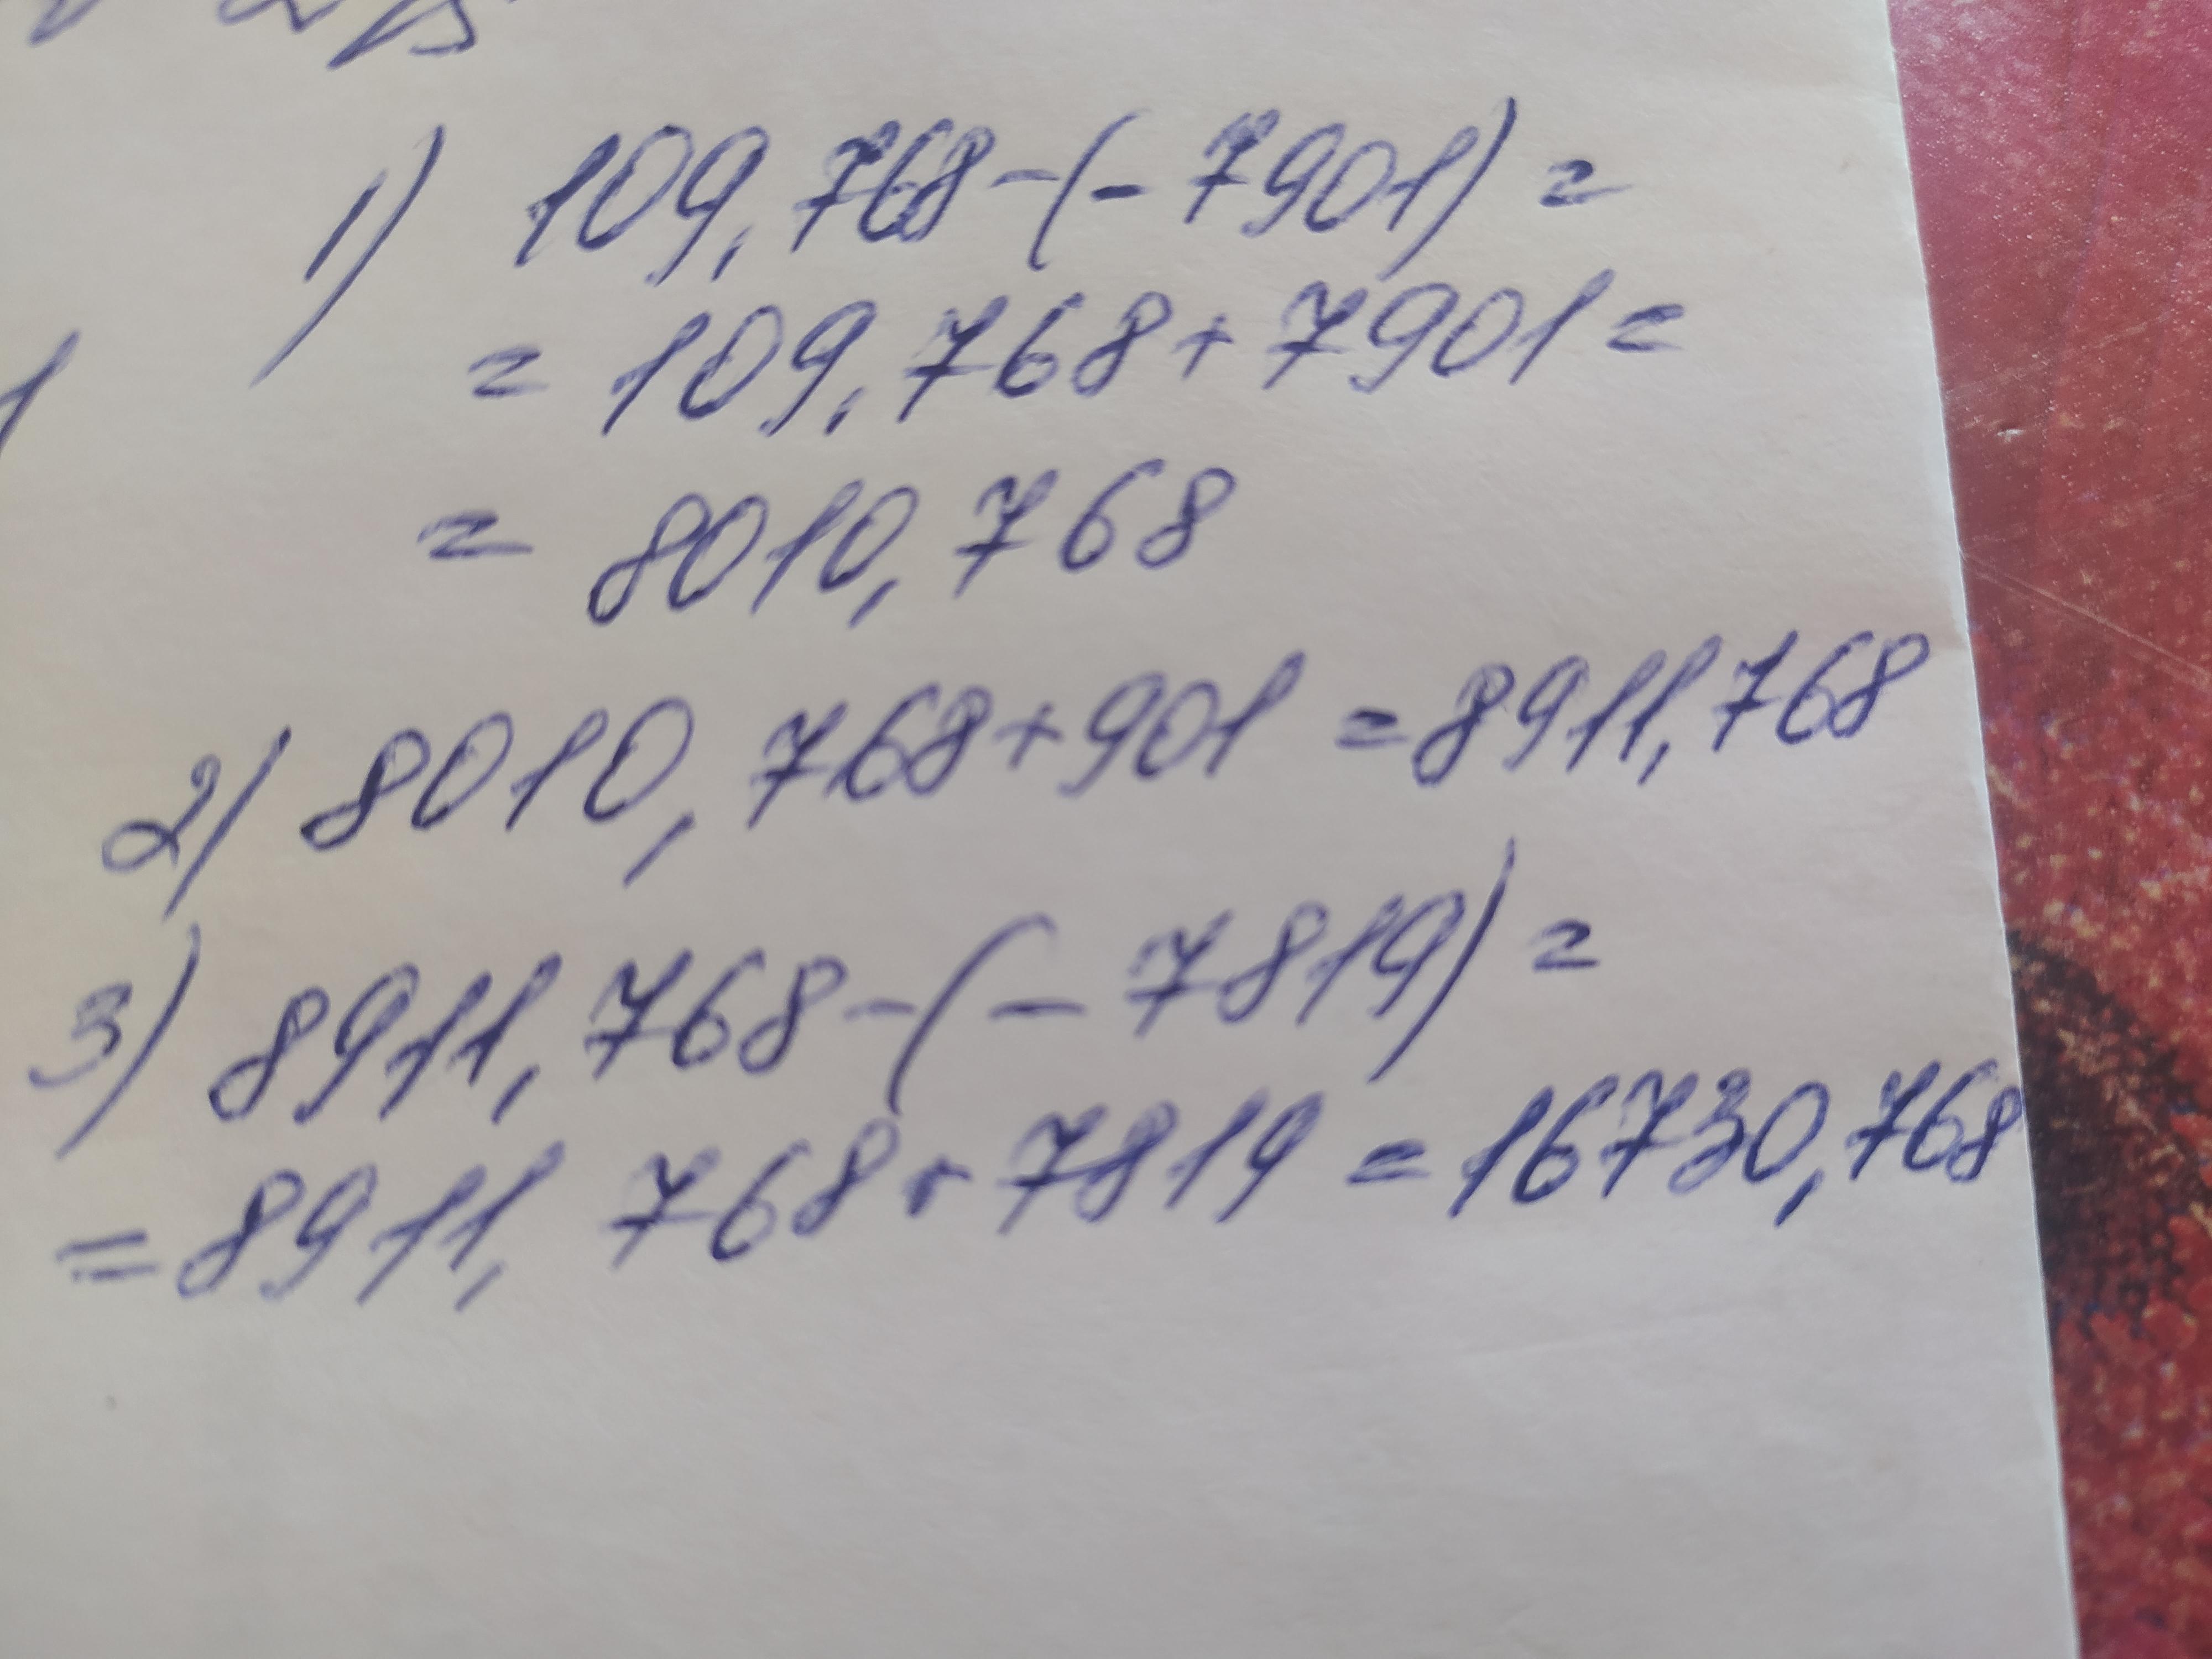 1) 109,768-(-7901)=
=109,768+7901=
=8010,768
2) 8010,768+901=8911,768
3) 8911,768-(-7819)=
=8911,768+7819=16730,768